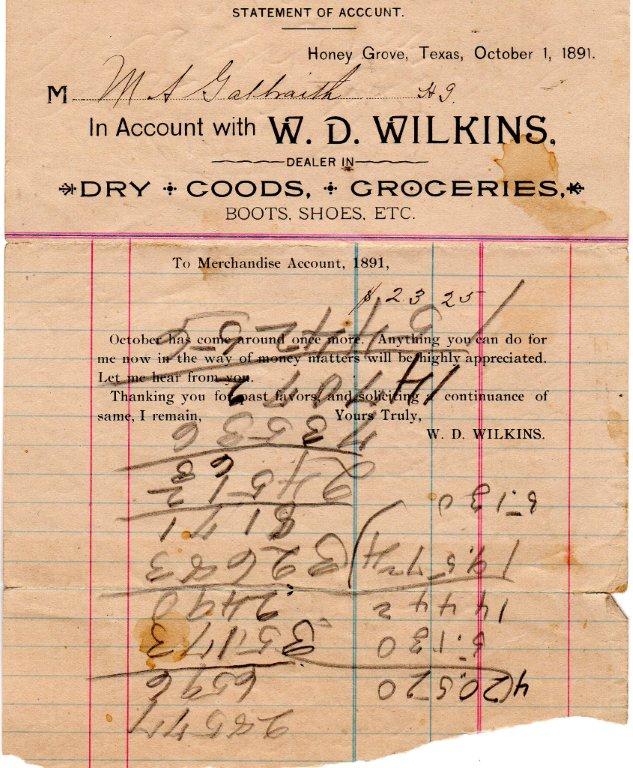 STATEMENT OF ACCCUNT.
Honey Grove, Texas, October 1, 1891.
M M A Galbraith
In Account with W. D. WILKINS,
DEALER IN
DRY + GOODS, + GROCERIES,
BOOTS, SHOES, ETC.
To Merchandise Account, 1891,
$ 23 25
October has come around once more. Anything you can do for
me now in the way of money matters will be highly appreciated.
Let me hear from you.
Thanking you for past favors, and soliciting a continuance of
same, I remain, Yours Truly,
W. D. WILKINS.
5130
1442
5130
20520
28577
6596
35173
2490
32683
8171